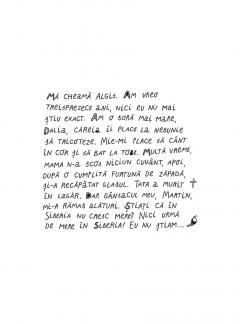 Mă cheamă Algis. Am vreo
treisprezece ani, nici eu nu mai
știu exact. Am o soră mai mare,
Dalia, căreia îi place la nebunie
să tricoteze. Mie-mi place să cânt
în cor și să bat la tobe. Multă vreme,
mama n-a scos niciun cuvânt, apoi,
după o cumplită furtună de zăpadă,
și-a recăpătat glasul. Tata a murit
în lagăr. Dar gânsacul meu, Martin,
mi-a rămas alături. Știați că în
Siberia nu cresc mere? Nici urmă
de mere în Siberia! Eu nu știam...